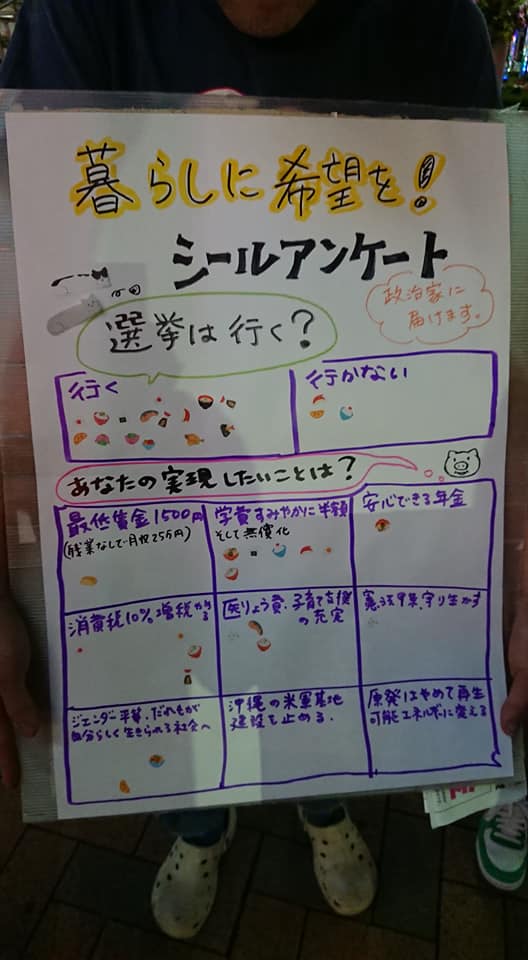 暮らしに希望を!
シールアンケート
政治家に
届けます。
選挙は行く?
行く
行かない
あなたの実現したいことは?
最低賃金1500円
(残業なしで月収25万円)
学費すみやかに半額
そして無償化
安心できる年金
消費税10%増税
医りょう費、子育て支援
の充実
憲法9条 守り生かす
ジェンダー平等、だれもが
自分らしく生きられる社会へ
沖縄の米軍基地
建設を止める。
原発はやめて再生
可能エネルギーに変える